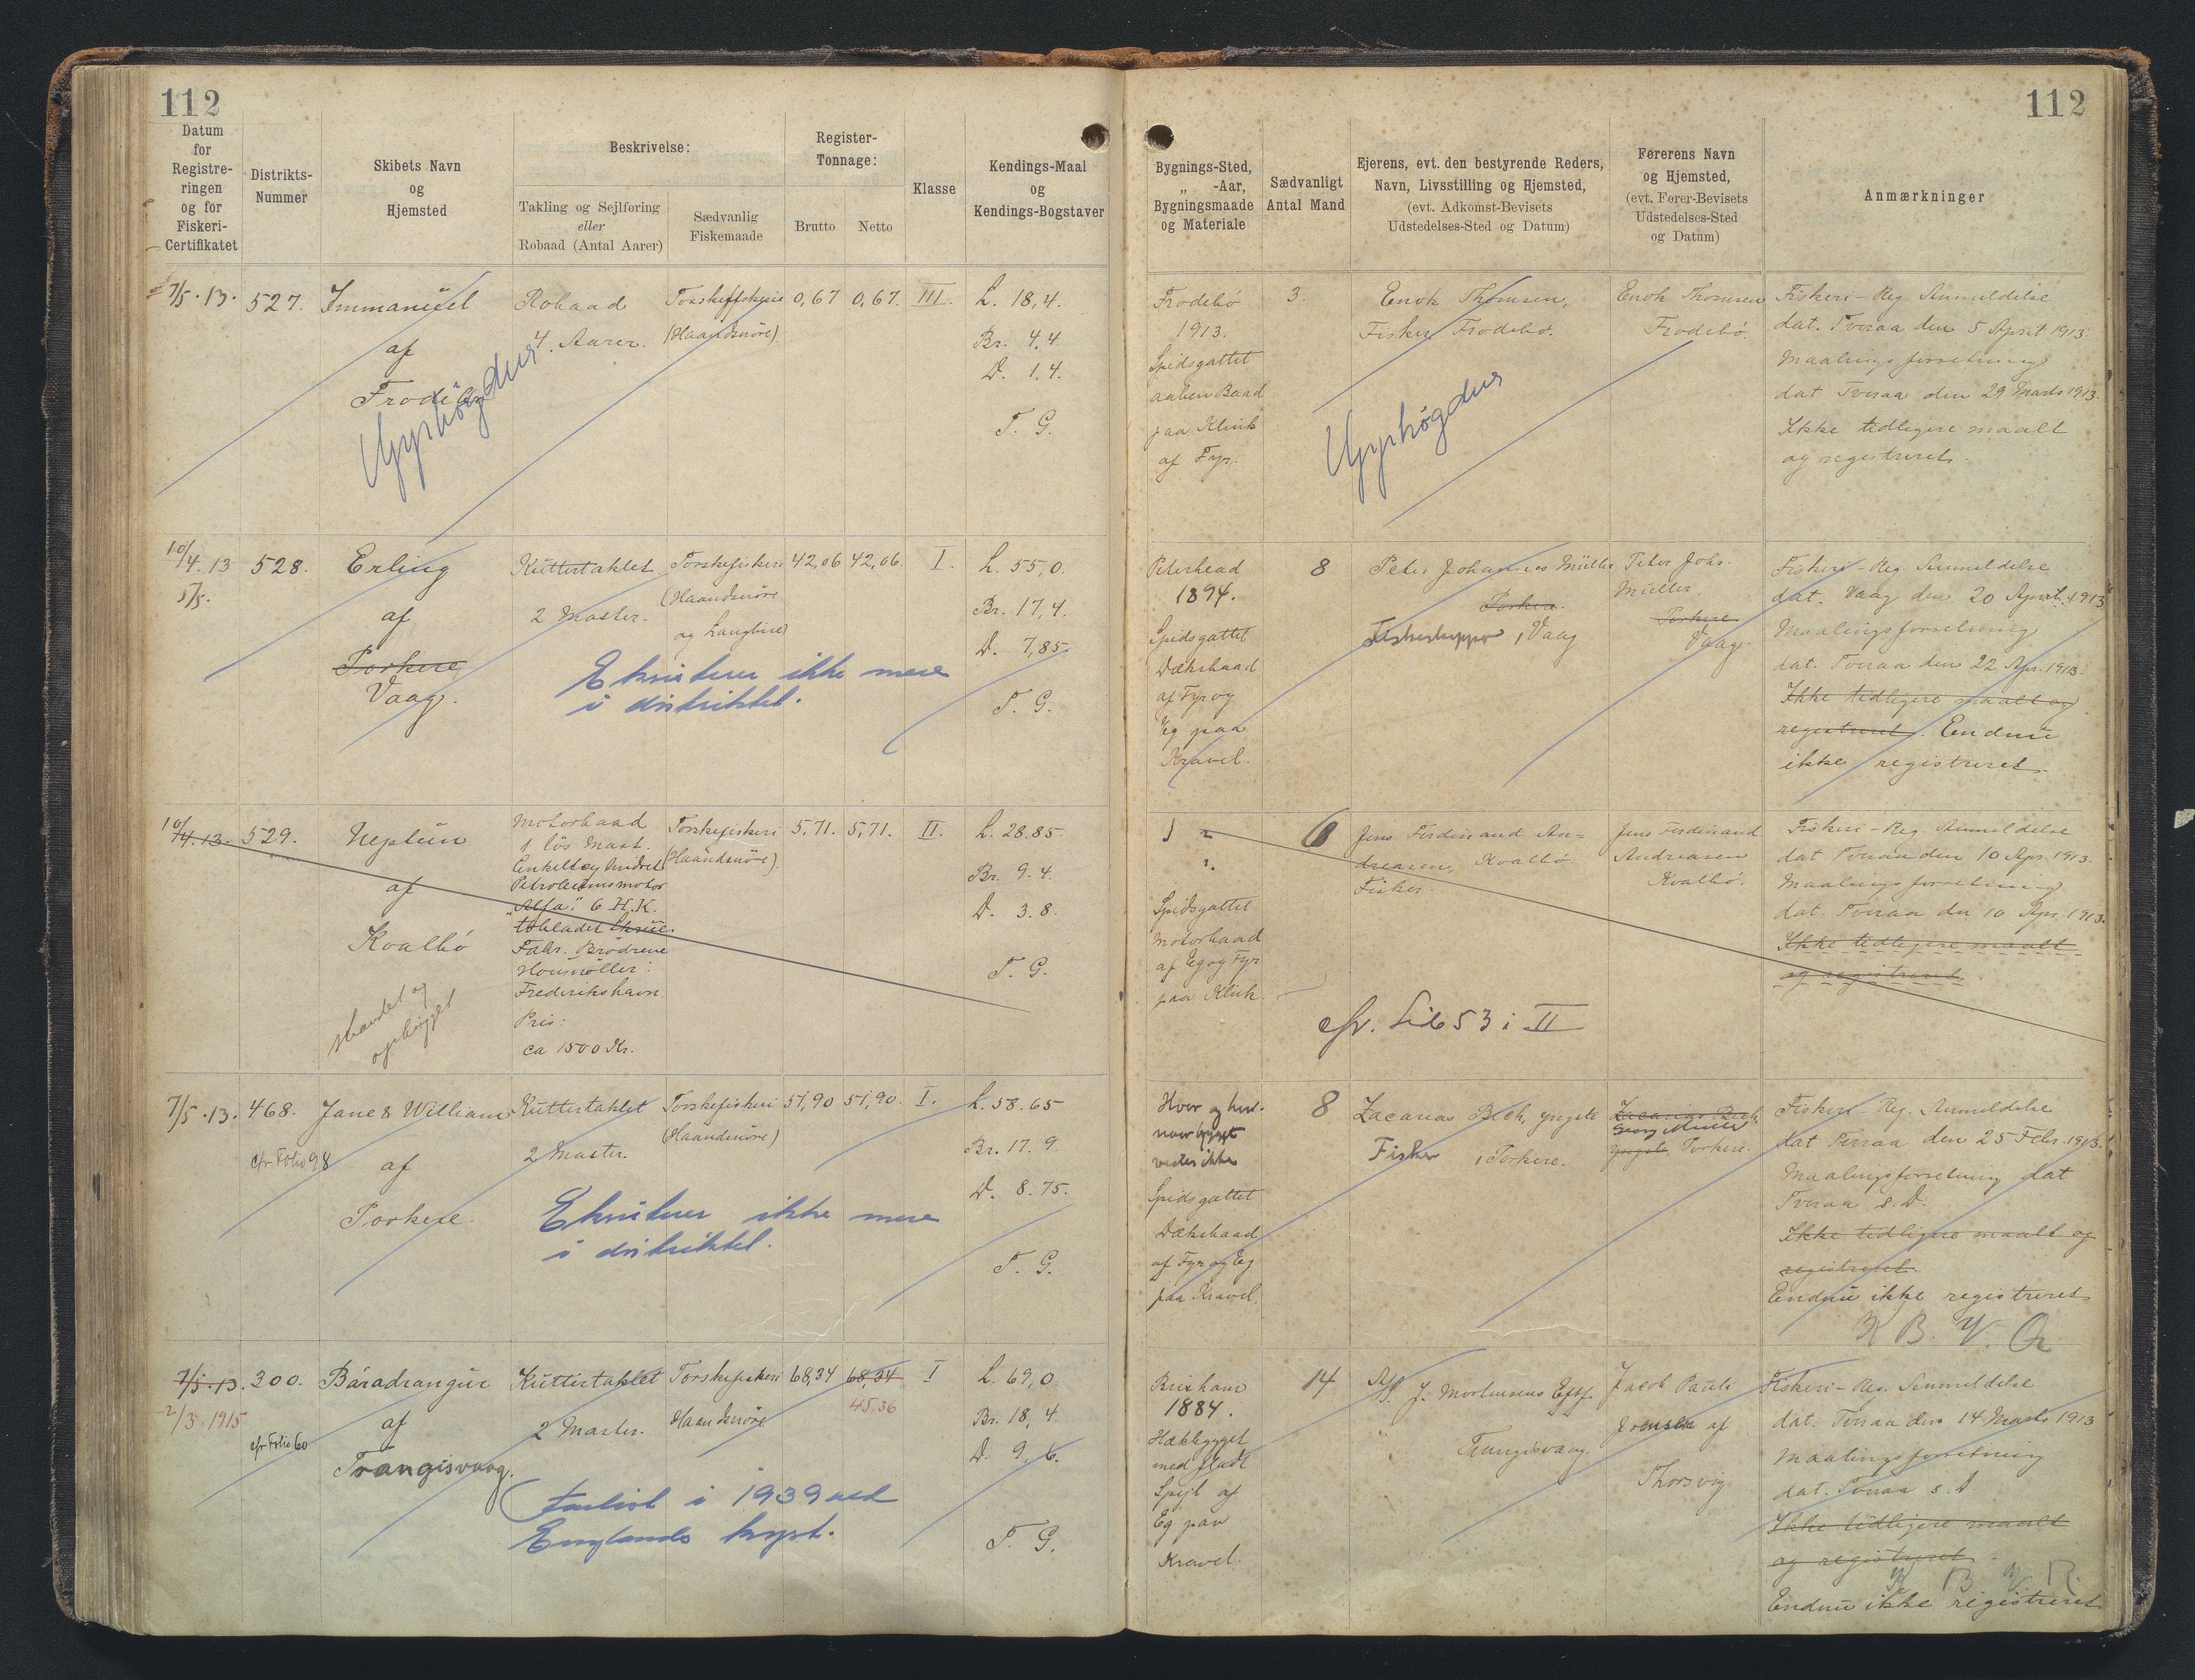 112
112
Datum
for
Registre-
ringen
og for
Fiskeri-
Certifikatet
Distrikts-
Nummer
Skibets Navn
og
Hjemsted
Beskrivelse:
Takling og Sejlføring
eller
Robaad (Antal Aarer)
Sædvanlig
Fiskemaade
Register-
Tonnage:
Brutto
Netto
Klasse
Kendings-Maal
og
Kendings-Bogstaver
Bygnings-Sted,
„ -Aar,
Bygningsmaade
og Materiale
Sædvanligt
Antal Mand
Ejerens, evt. den bestyrende Reders,
Navn, Livsstilling og Hjemsted,
(evt. Adkomst-Bevisets
Udstedelses-Sted og Datum)
Førerens Navn
og Hjemsted,
(evt. Fører-Bevisets
Udstedelses-Sted
og Datum)
Anmærkninger
7/5.13.
527.
Immanuel
af
Frodebø
Robaad
4. Aarer.
Torskefiskeri
(Haandsnöre)
0,67
0,67.
III.
L. 18,4.
Br. 4,4
D. 1.4.
T. G.
Frodebö
1913.
Spidsgattet
aaben Baad
paa Klink
af Fyr.
3.
Enok Thomsen,
Fisker, Frodebø.
Enok Thomsen
Frodebø.
Fiskeri-Reg. Anmeldelse
dat. Tveraa den 5 April 1913.
Maalingsforretning
dat Tveraa den 29 Marts 1913.
Ikke tidligere maalt
og registreret.
10/4.13
5/5.
528.
Erling
af
Porkere
Vaag.
Kuttertaklet
2 Master.
Torskefiskeri
(Haandsnöre
og Langline)
42,06
42,06.
I.
L. 55,0.
Br. 17,4.
D. 7,85.
T. G.
Eksisterer ikke mere
i distriktet.
Peterhead
1894.
Spidsgattet
Dæksbaad
af Fyr og
Eg paa
Kravel.
8
Peter Johannes Müller
Porkere.
Fiskeskipper, Vaag
Peter Johs.
Müller.
Porkere
Vaag.
Fiskeri-Reg. Anmeldelse
dat. Vaag den 20 April 1913
Maalingsforretning
dat. Tveraa den 22 Apr. 1913.
Ikke tidligere maalt og
registreret. Endnu
ikke registreret.
10/4.13.
529.
Neptun
af
Kvalbö
strandet og
ophugget
Motorbaad
1 lös Mast.
Enkeltcylindret
Petroleumsmotor
"Alfa" 6 H.K.
tobladet Skrue.
Fabr. Brödrene
Houmöller:
Frederikshavn
Pris:
ca 1500 Kr.
Torskefiskeri
(Haandsnöre).
5,71.
5,71.
II.
L. 28.85.
Br. 9.4.
D. 3.8.
T. G.
Spidsgattet
Motorbaad
af Eg og Fyr
paa Klink.
6
Jens Ferdinand An-
dreasen, Kvalbö.
Fisker.
cfr. Lib 53 i II
Jens Ferdinand
Andreasen
Kvalbö.
Fiskeri-Reg. Anmeldelse
dat Tveraa den 10 Apr. 1913.
Maalingsforretning
dat. Tveraa den 10 Apr. 1913.
Ikke tidligere maalt
og registreret
7/5.13.
468.
cfr Folio 98
Jane & William
af
Porkere.
Kuttertaklet
2 Master.
Torskefiskeri
(Haandsnöre)
51,90
51,90.
I.
L. 58.65
Br. 17.9.
D. 8.75.
T. G.
Eksisterer ikke mere
i distriktet.
Hvor og hvor-
naar bygget
vides ikke
Spidsgattet
Dæksbaad
af Fyr og Eg
paa Kravel.
8
Zacarias Bech, yngste
Fisker, Porkere.
Zacarias Bech
yngste, Porkere.
Fiskeri-Reg. Anmeldelse
dat Tveraa den 25 Febr. 1913.
Maalingsforretning dat
Tveraa s. D.
Ikke tidligere maalt og
registreret.
Endnu ikke registreret
7/5.13.
2/3.1915
300.
cfr Folio 60
Báradrangur
af
Trangisvaag.
Kuttertaklet
2 Master.
Torskefiskeri
Haandsnöre
68,34
68,34
45,36
I
L. 69,0.
Br. 18,4.
D. 9.6.
T. G.
Forlist i 1939 ved
Englands kyst.
Brixham
1884.
Hækbygget
med fladt
Spejl af
Eg paa
Kravel.
14
J. Mortensens Eftf.
Trangisvaag.
Jacob Pauli
Joensen af
Thorsvig
Fiskeri-Reg. Anmeldelse
dat. Tveraa den 14 Marts 1913
Maalingsforretning
dat. Tveraa s. D.
Ikke tidligere maalt
og registreret.
Endnu ikke registreret